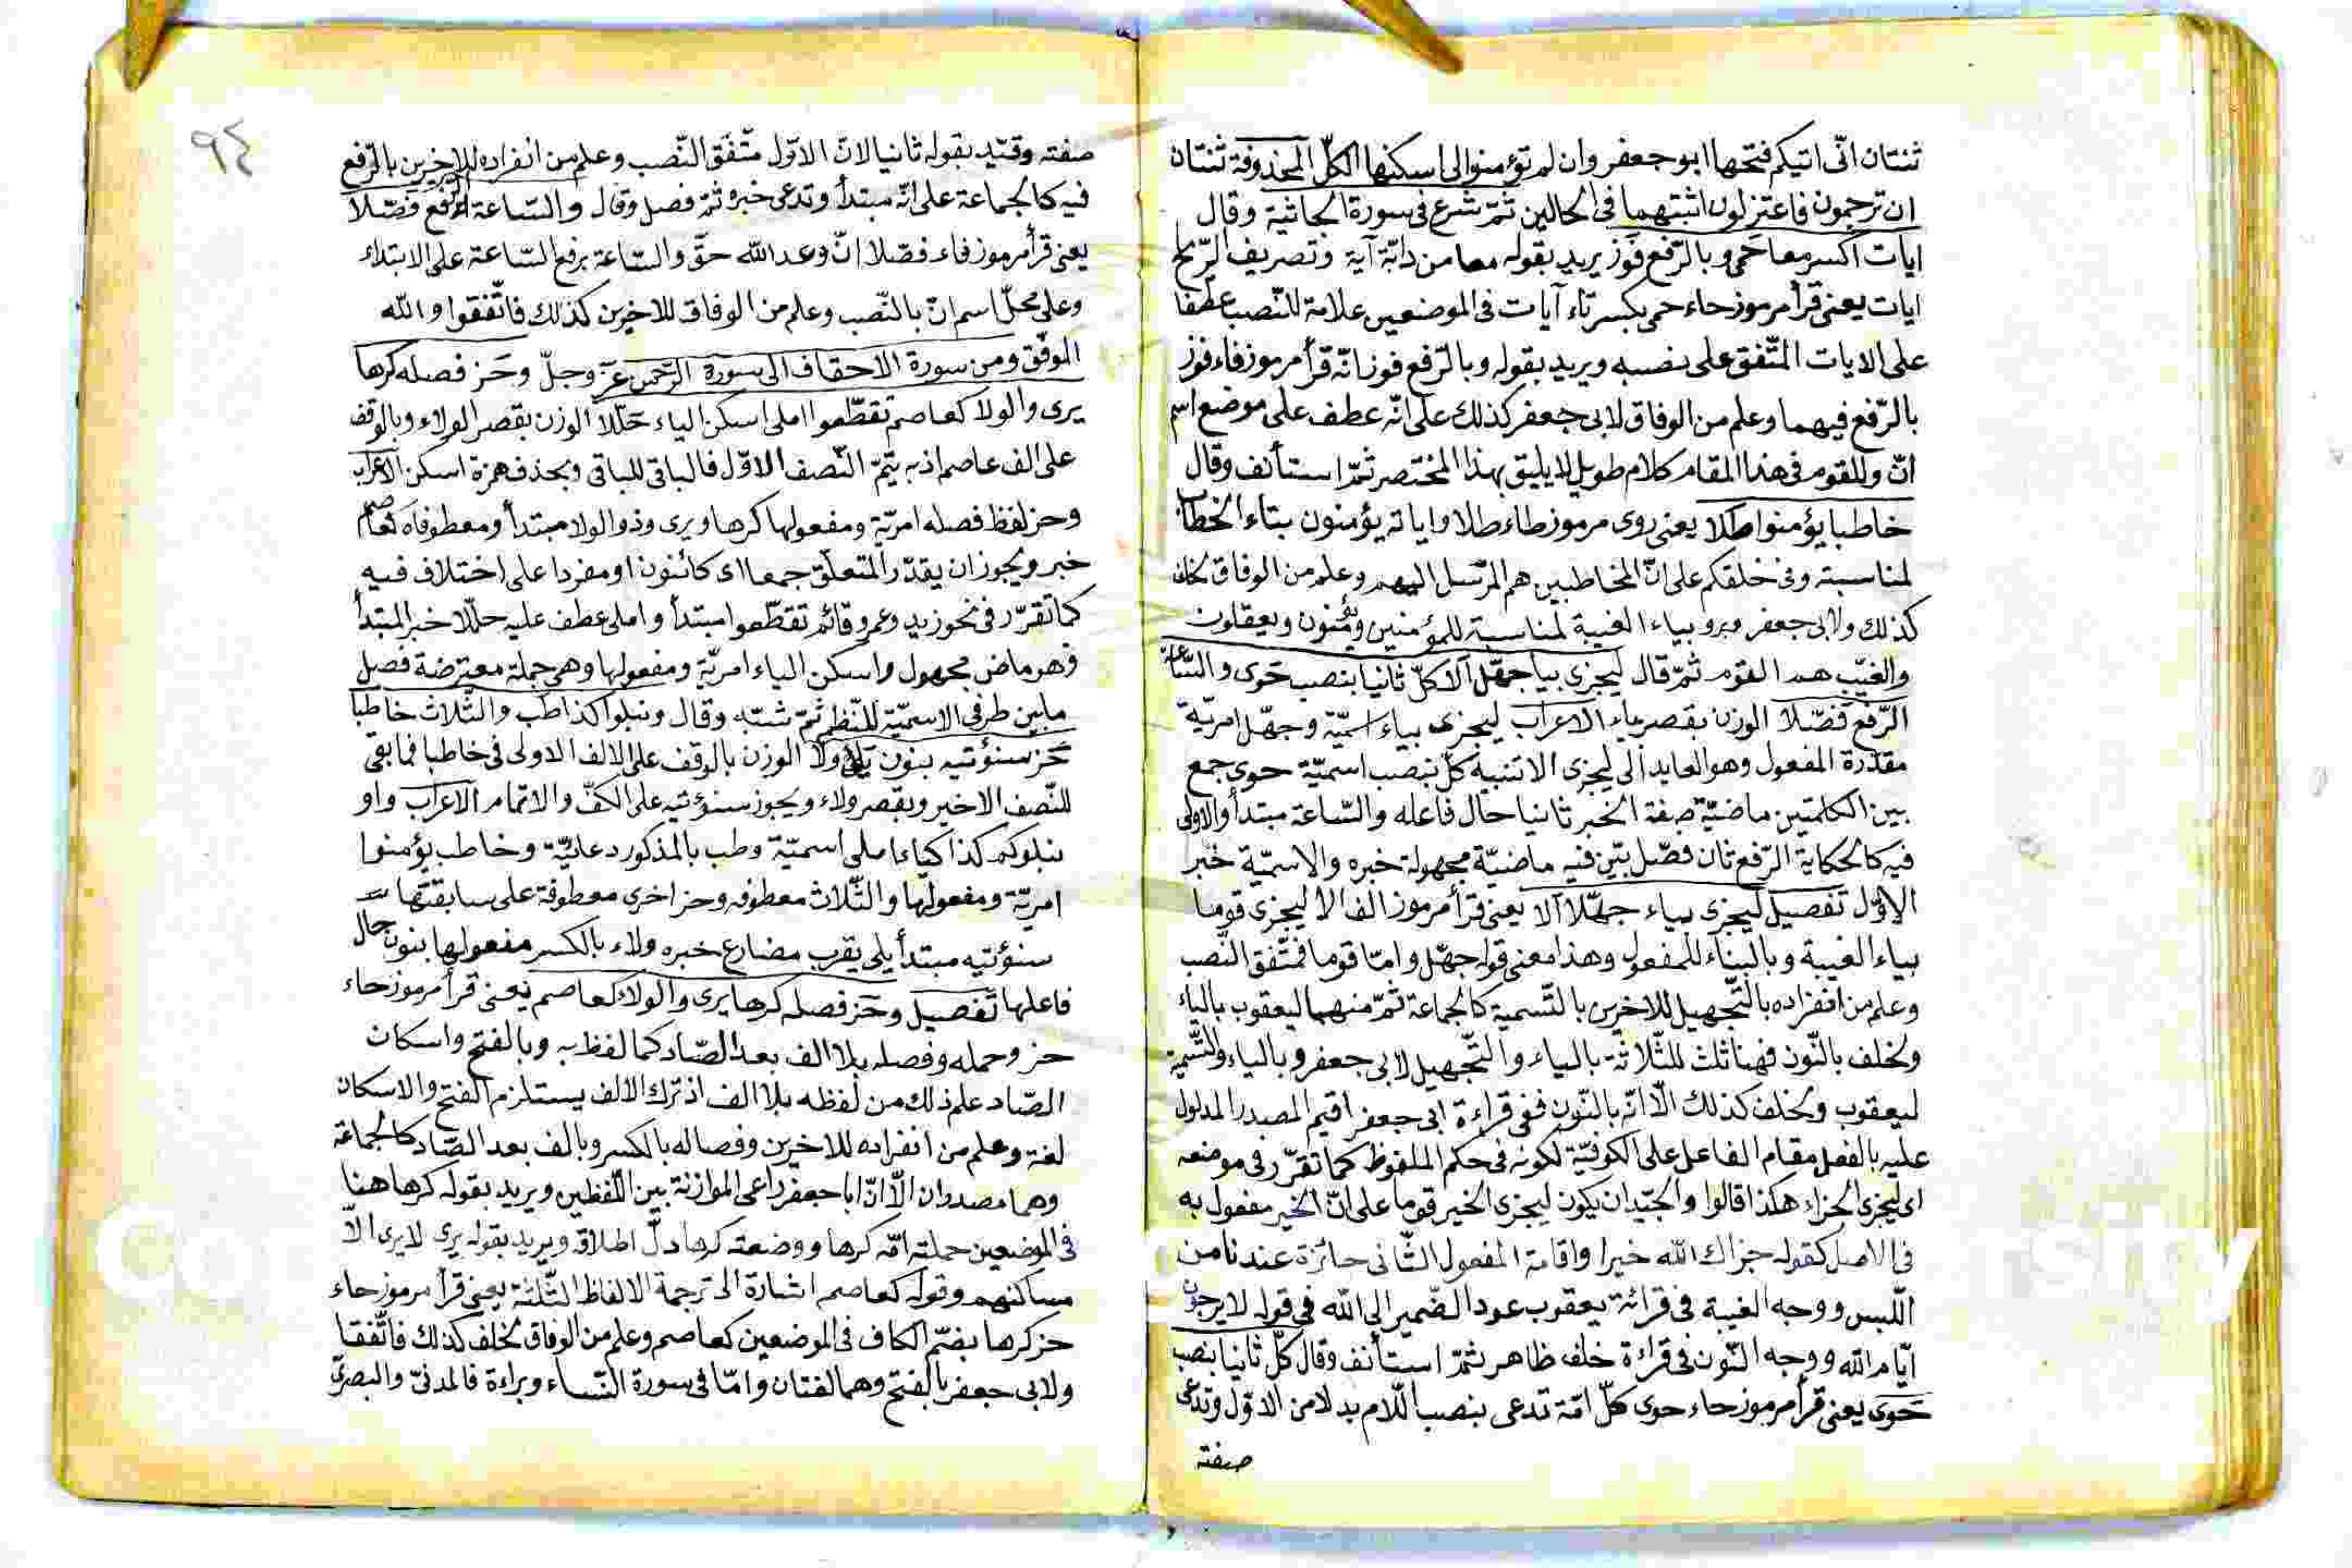 ثنتان انّى اتيكم فتحها ابو جعفر وان لم تؤمنوا لى اسكنها الكلّ المحذوفة ثنتان
ان ترجمون فاعتزلون اثبتهما فى الحالين ثمّ شرع فى سورة الجاثية وقال
ايات اكسر معا حمى وبالرّفع فوز يريد بقوله معا من دابّة آية وتصريف الرّيح
ايات يعنى قرأ مرموز حاء حمى بكسر تاء آيات فى الموضعين علامة للنّصب عطفا
على الايات المتّفق على نصبه ويريد بقوله وبالرّفع فوز انّه قرأ مرموز فاء فوز
بالرّفع فيهما وعلم من الوفاق لابى جعفر كذلك على انّه عطف على موضع اسم
انّ وللقوم فى هذا المقام كلام طويل لا يليق بهذا المختصر ثمّ استأنف وقال
خاطبا يؤمنوا طلا يعنى روى مرموز طاء طلا واياته يؤمنون بتاء الخطاب
لمناسبته وفى خلقكم على انّ المخاطبين هم المرسل اليهم وعلم من الوفاق لخلف
كذلك ولابى جعفر وبياء الغيبة لمناسبة للمؤمنين ويؤمنون ويعقلون
والغيّب هم القوم ثمّ قال ليجزى بيا جهّل آلا كلّ ثانيا بنصب حوى والسّاعة
الرّفع فصّلا الوزن بقصر ياء الاعراب ليجزى بياء اسميّة وجهّل امريّة
مقدّرة المفعول وهو العايد الى ليجزى الا تنبيه كلّ بنصب اسميّة حوى جمع
بين الكلمتين ماضيّة صفة الخبر ثانيا حال فاعله والسّاعة مبتدأ والاولى
فيه كالحكاية الرّفع ثان فصّل بيّن فيه ماضيّة مجهولة خبره والاسميّة خبر
الاوّل تفصيل ليجزى بياء جهّلا آلا يعنى قرأ مرموز الف الا ليجزى قوما
بياء الغيبة وبالبناء للمفعول وهذا معنى قوله جهّل وامّا قوما فمتّفق النّصب
وعلم من انفراده بالتّجهيل للاخرين بالتّسمية كالجماعة ثمّ منهما ليعقوب بالياء
ولخلف بالنّون فهنا ثلث للثّلاثة بالياء والتّجهيل لابى جعفر وبالياء والتّسمية
ليعقوب ولخلف كذلك الّا انّه بالنّون ففى قراءة ابى جعفر اقيم المصدر المدلول
عليه بالفعل مقام الفاعل على الكوفيّة لكونه فى حكم الملفوظ كما تقرّر فى موضعه
اى ليجزى الجزاء هكذا قالوا والجيّد ان يكون ليجزى الخير قوما على انّ الخير مفعول به
فى الاصل كقوله جزاك الله خيرا واقامة المفعول الثّانى جائزة عندنا من
اللّبس ووجه الغيبة فى قرائة يعقوب عود الضّمير الى الله فى قوله لا يرجون
ايّام الله ووجه النّون فى قراءة خلف ظاهر ثمّ استأنف وقال كلّ ثانيا بنصب
حوى يعنى قرأ مرموز حاء حوى كلّ امّة تدعى بنصب اللّام بدلا من الاوّل وتدعى
صفته
٩٤
صفته وقيّد بقوله ثانيا لانّ الاوّل متّفق النّصب وعلم من انفراده للاخرين بالرّفع
فيه كالجماعة على انّه مبتدأ وتدعى خبره ثمّ فصل وقال والسّاعة الرّفع فصّلا
يعنى قرأ مرموز فاء فصّلا انّ وعد الله حقّ والسّاعة برفع السّاعة على الابتداء
وعلى محلّ اسم انّ بالنّصب وعلم من الوفاق للاخرين كذلك فاتّفقوا والله
الموفّق ومن سورة الاحقاف الى سورة الرّحمن عزّ وجلّ وحز فصله كرها
يرى والولا كعاصم تقطّعوا املى اسكن الياء حلّلا الوزن بقصر الولاء وبالوقف
على الف عاصم اذ به يتمّ النّصف الاوّل فالباقى للباقى وبحذف همزة اسكن الاعراب
وحز لفظ فصله امريّة ومفعولها كرها ويرى وذو الولا مبتدأ ومعطوفاه كعاصم
خبر ويجوز ان يقدّر المتعلّق جمعا اى كائنون او مفردا على اختلاف فيه
كما تقرّر فى نحو زيد وعمرو قائم تقطّعوا مبتدأ واملى عطف عليه حلّلا خبر المبتدأ
فهو ماض مجهول واسكن الياء امريّة ومفعولها وهى جملة معترضة فصل
مابين طرفى الاسميّة للنّظم ثمّ شبّه وقال ونبلوا كذا طب والثّلاث خاطبا
حز سنؤتيه بنون يلى ولا الوزن بالوقف على الالف الاولى فى خاطبا فما بقى
للنّصف الاخير وبقصر ولاء ويجوز سنؤتيه على الكفّ والاتمام الاعراب واو
نبلوكم كذا كياء املى اسميّة وطب بالمذكور دعائيّة وخاطب يؤمنوا
امريّة ومفعولها والثّلاث معطوفه وحز اخرى معطوفة على سابقتها
سنؤتيه مبتدأ يلى يقرب مضارع خبره ولاء بالكسر مفعولها بنون حال
فاعلها تفصيل وحز فصله كرها يرى والولا كعاصم يعنى قرأ مرموز حاء
حز وحمله وفصله بلا الف بعد الصّاد كما لفظ به وبالفتح واسكان
الصّاد علم ذلك من لفظه بلا الف اذ ترك الالف يستلزم الفتح والاسكان
لغة وعلم من انفراده للاخرين وفصاله بالكسر وبالف بعد الصّاد كالجماعة
وهما مصدران الّا انّ ابا جعفر راعى الموازنة بين اللّفظين ويريد بقوله كرها هنا
فى الموضعين حملته امّه كرها ووضعته كرها دلّ اطلاقه ويريد بقوله يرى لا يرى الّا
مساكنهم وقوله كعاصم اشارة الى ترجمة الالفاظ الثّلثة يعنى قرأ مرموز حاء
حز كرها بضمّ الكاف فى الموضعين كعاصم وعلم من الوفاق لخلف كذلك فاتّفقا
ولابى جعفر بالفتح وهما لغتان وامّا فى سورة النّساء وبراءة فالمدنىّ والبصرىّ